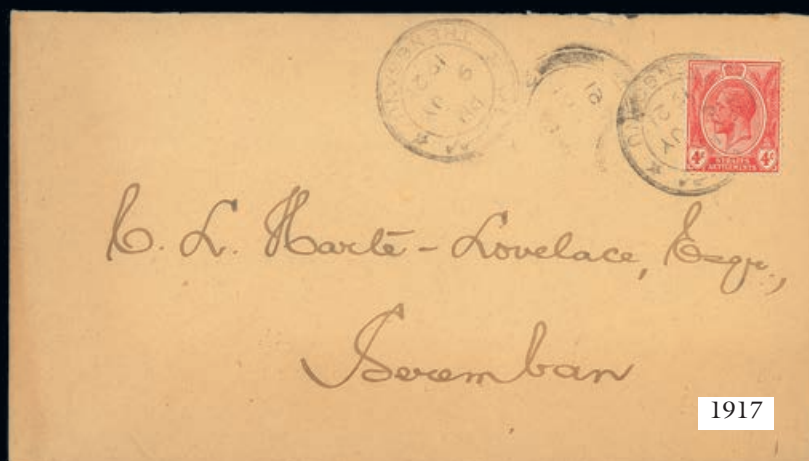 4c 4c
STRAITS
SETTLEMENTS
C. L. Harte-Lovelace, Esqr.,
Seremban
1917